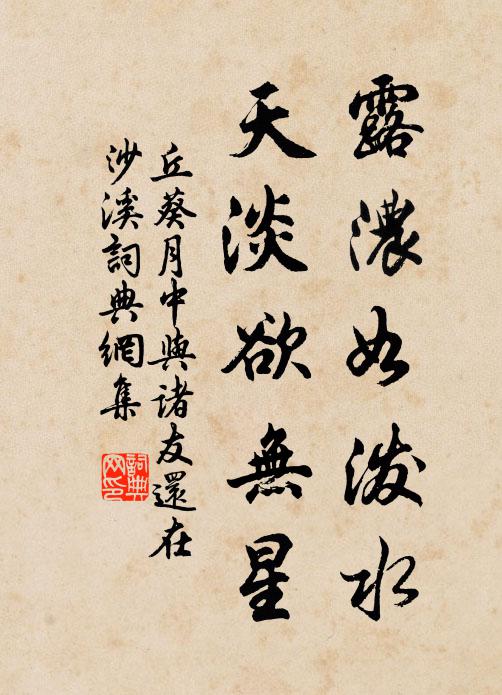 露濃如潑水
天淡欲無星
丘葵月中與諸友還在
沙溪詞典網集
詞典
网印